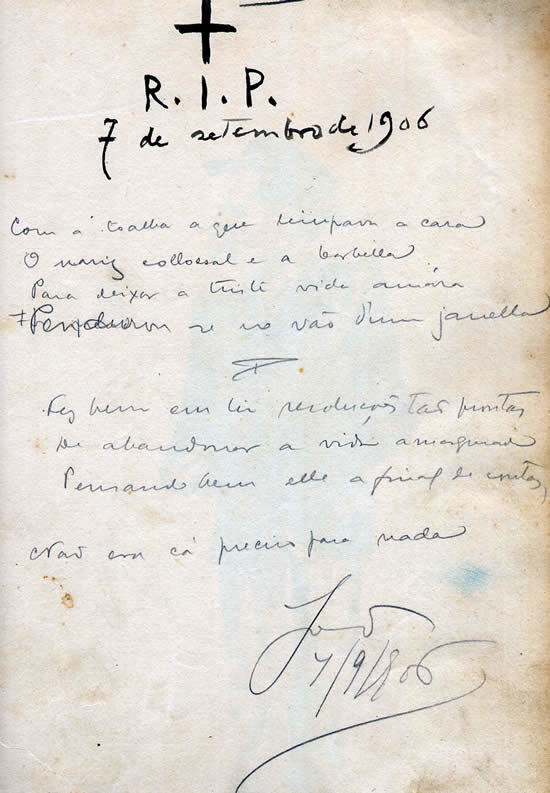 R. I. P.
7 de setembro de 1906
Com a toalha a que limpava a cara
O nariz collossal e a barbella
Para deixar a triste vida amára
Pendurou se no vão d'um janella
Fez bem em ter resoluções tão promptas
De abandonar a vida amargurada
Pensando bem elle afinal de contas,
Não era cá preciso para nada
7/9/906